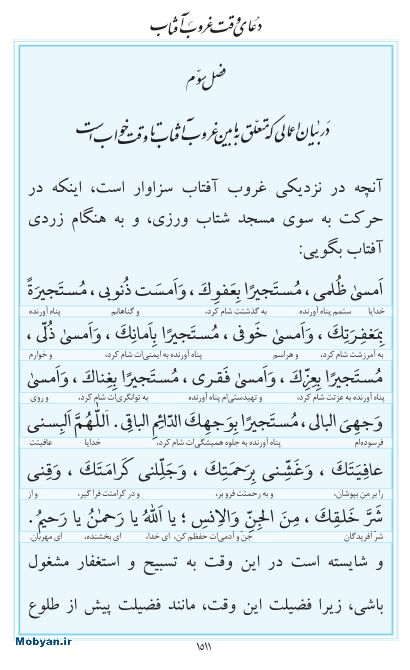 دعای وقت غروب آفتاب
فصل سوّم
در بیان اعمالی که متعلّق به ما بین غروب آفتاب تا وقت خواب است
آنچه در نزدیکی غروب آفتاب سزاوار است، اینکه در
حرکت به سوی مسجد شتاب ورزی، و به هنگام زردی
آفتاب بگویی:
اَمسیٰ ظُلمی، مُستَجیرًا بِعَفوِكَ، وَاَمسَت ذُنوبی، مُستَجیرَةً
خدایا ستمم پناه آورنده به گذشتت شام کرد، و گناهانم پناه آورنده
بِمَغفِرَتِكَ، وَاَمسیٰ خَوفی، مُستَجیرًا بِاَمانِكَ، وَاَمسیٰ ذُلّی،
به آمرزشت شام کرد، و هراسم پناه آورنده به ایمنی‌ات شام کرد، و خوارم
مُستَجیرًا بِعِزِّكَ، وَاَمسیٰ فَقری، مُستَجیرًا بِغِناكَ، وَاَمسیٰ
پناه آورنده به عزتت شام کرد، و تهیدستی‌ام پناه آورنده به توانگری‌ات شام کرد، و روی
وَجهِیَ البالی، مُستَجیرًا بِوَجهِكَ الدّائِمِ الباقی. اَللّٰهُمَّ اَلبِسنی
فرسوده‌ام پناه آورنده به جلوه همیشگی‌ات شام کرد، خدایا عافیتت
عافِیَتَكَ، وَغَشِّنی بِرَحمَتِكَ، وَجَلِّلنی كَرامَتَكَ، وَقِنی
را بر من بپوشان، و به رحمتت فرو بر، و در کرامتت فراگیر، و از
شَرَّ خَلقِكَ، مِنَ الجِنِّ وَالاِنسِ؛ یا اَللّٰهُ یا رَحمٰنُ یا رَحیمُ.
شرّ آفریدگان جن و آدمی‌ات حفظم کن، ای خدا، ای بخشنده، ای مهربان.
و شایسته است در این وقت به تسبیح و استغفار مشغول
باشی، زیرا فضیلت این وقت، مانند فضیلت پیش از طلوع
۱۵۱۱
Mobyan.ir